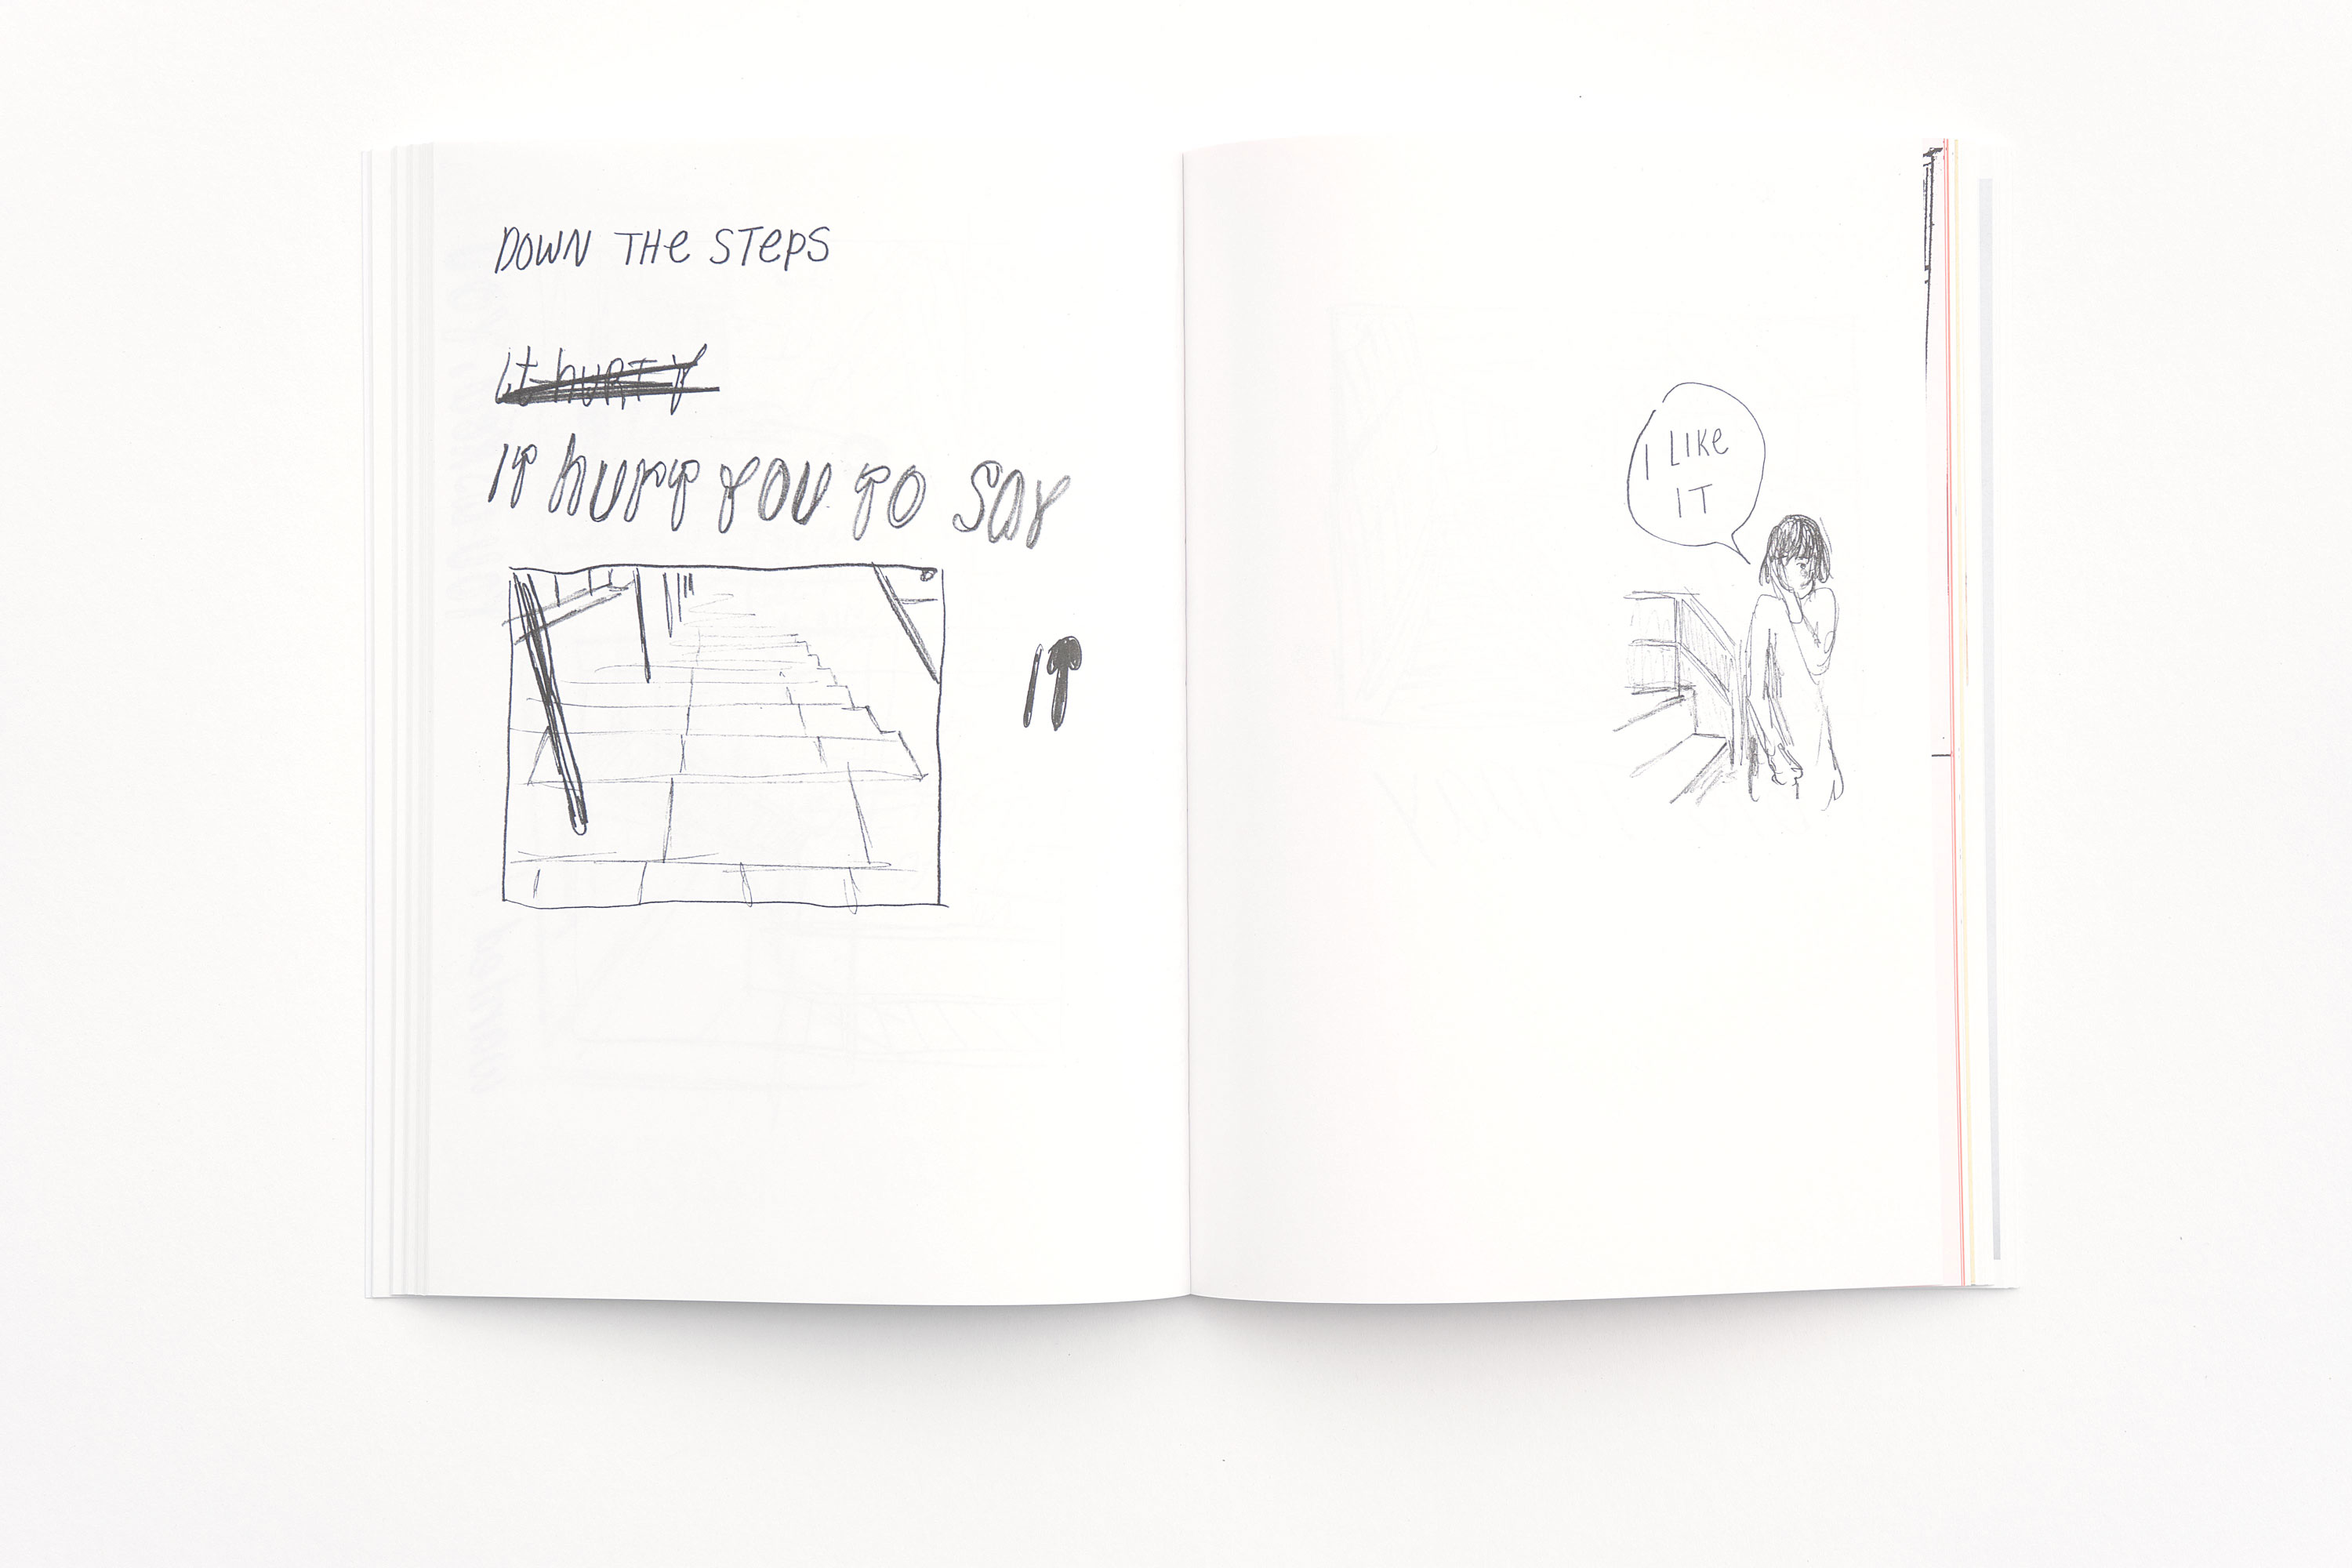 DOWN THE STEPS
It hURT Y
IT hURT YOU TO SAY
IT
I LIKE
IT